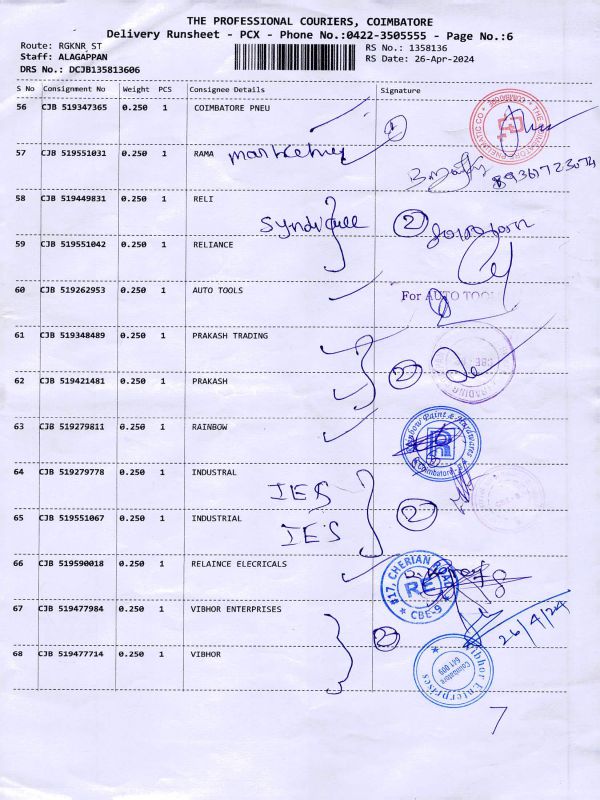 THE PROFESSIONAL COURIERS, COIMBATORE
Delivery Runsheet - PCX - Phone No.:0422-3505555 - Page No.:6
Route: RGKNR_ST
RS No.: 1358136
Staff: ALAGAPPAN
RS Date: 26-Apr-2024
DRS No.: DCJB135813606
S No Consignment No Weight PCS Consignee Details Signature
56 CJB 519347365 0.250 1 COIMBATORE PNEU
1
57 CJB 519551031 0.250 1 RAMA
58 CJB 519449831 0.250 1 RELI
2
59 CJB 519551042 0.250 1 RELIANCE
60 CJB 519262953 0.250 1 AUTO TOOLS
For AUTO TOOL
61 CJB 519348489 0.250 1 PRAKASH TRADING
2
62 CJB 519421481 0.250 1 PRAKASH
63 CJB 519279811 0.250 1 RAINBOW
Rainbow Paint & Hardwares
R
Coimbatore
64 CJB 519279778 0.250 1 INDUSTRAL
IES
2
65 CJB 519551067 0.250 1 INDUSTRIAL
IES
66 CJB 519590018 0.250 1 RELAINCE ELECRICALS
#17, CHERIAN ROAD
RE
CBE-9
67 CJB 519477984 0.250 1 VIBHOR ENTERPRISES
26/4/24
2
68 CJB 519477714 0.250 1 VIBHOR
Vibhor Enterprises
Coimbatore
641 009
7